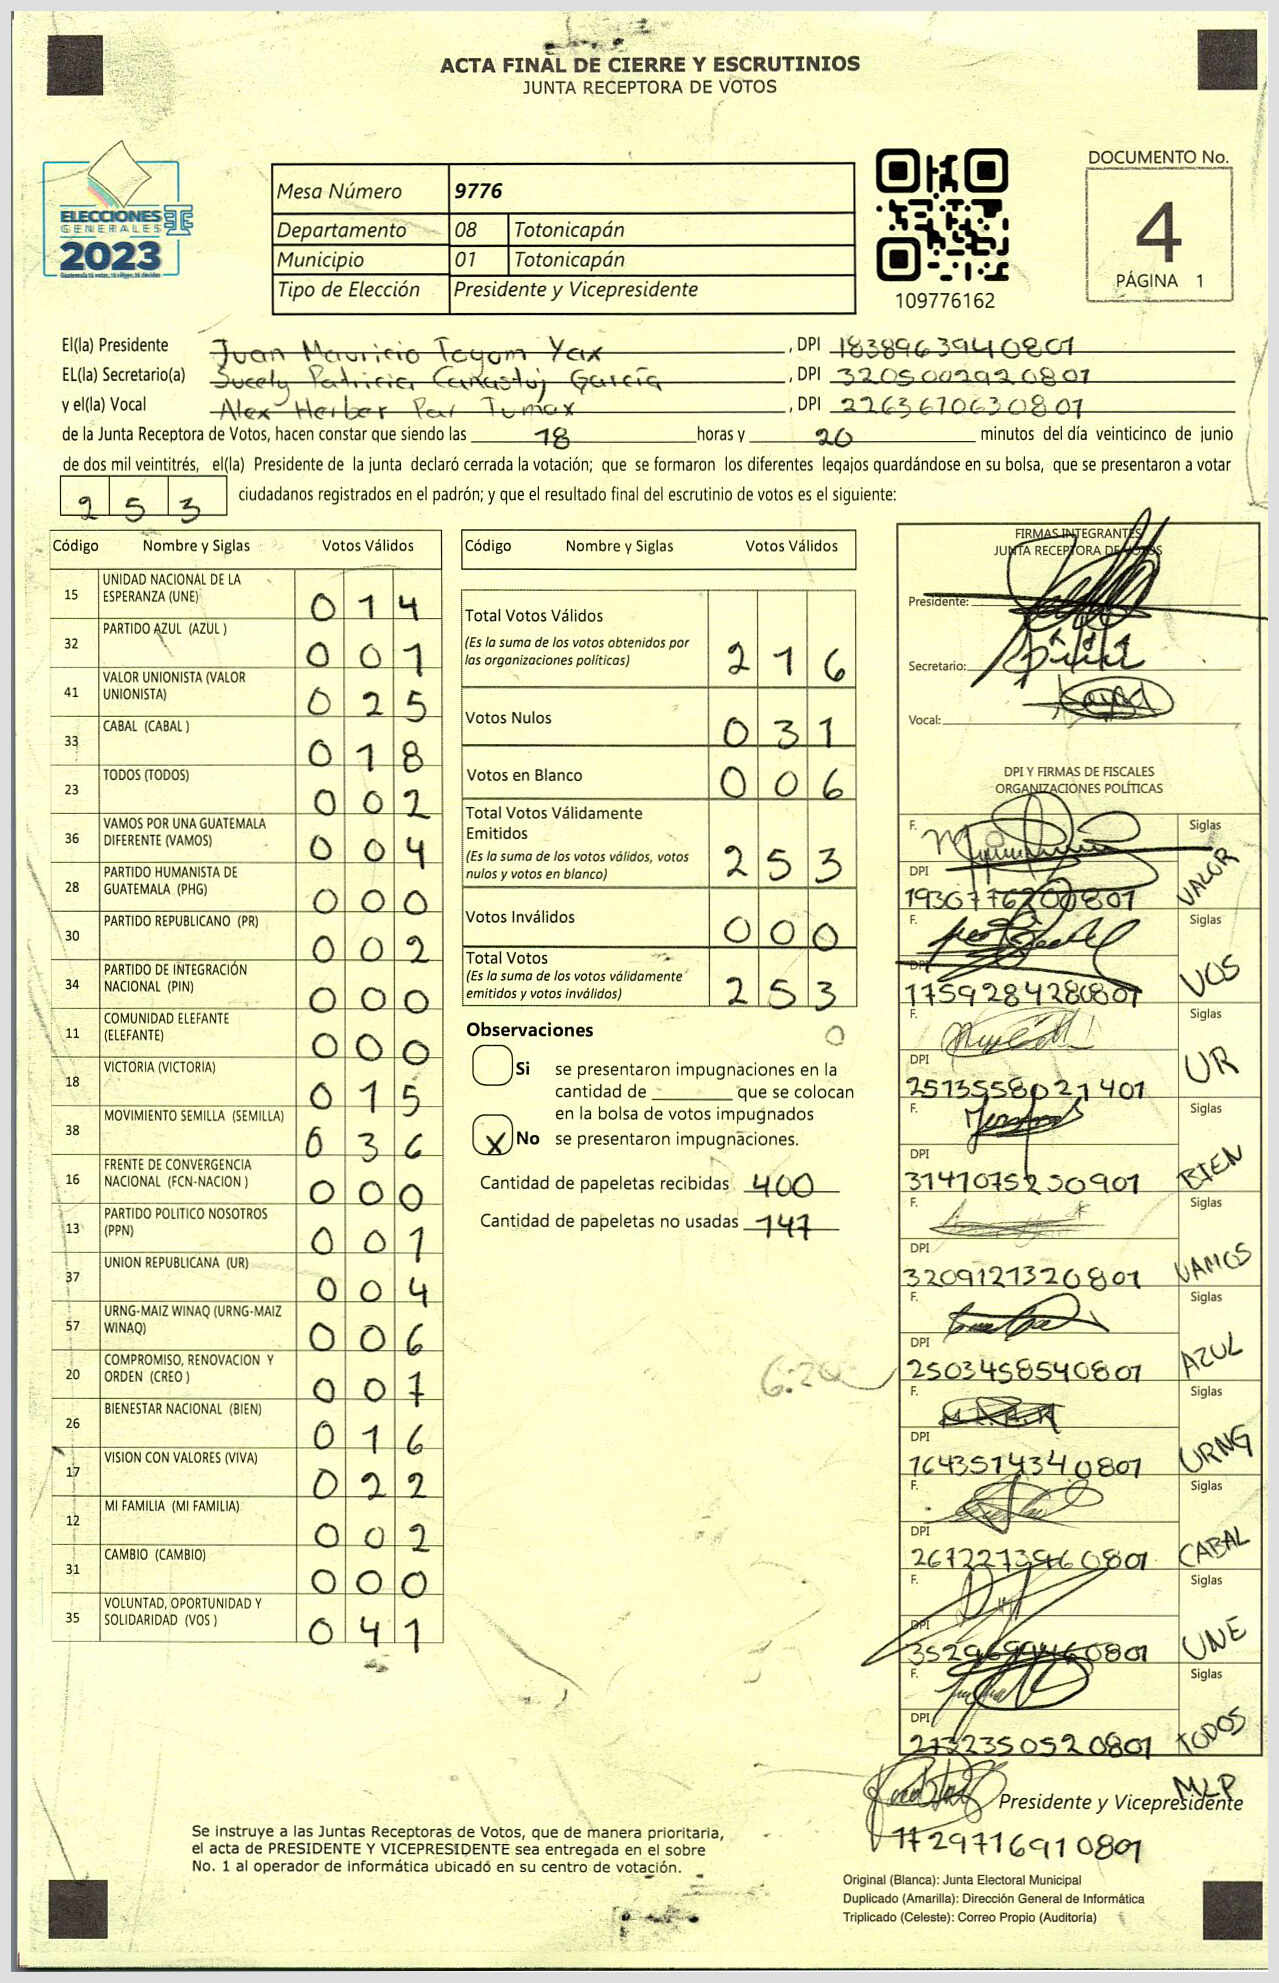 ACTA FINAL DE CIERRE Y ESCRUTINIOS
JUNTA RECEPTORA DE VOTOS
ELECCIONES
GENERALES
2023
Mesa Número 9776
Departamento 08 Totonicapán
Municipio 01 Totonicapán
Tipo de Elección Presidente y Vicepresidente
109776162
DOCUMENTO No.
4
PÁGINA 1
El(la) Presidente Juan Mauricio Tayom Yax, DPI 1838963940801
EL(la) Secretario(a) Sucely Patricia Canastuj García, DPI 3205002920801
y el(la) Vocal Alex Herber Par Tumax, DPI 2263670630801
de la Junta Receptora de Votos, hacen constar que siendo las 18 horas y 20 minutos del día veinticinco de junio
de dos mil veintitrés, el(la) Presidente de la junta declaró cerrada la votación; que se formaron los diferentes legajos guardándose en su bolsa, que se presentaron a votar
253 ciudadanos registrados en el padrón; y que el resultado final del escrutinio de votos es el siguiente:
Código Nombre y Siglas Votos Válidos
15 UNIDAD NACIONAL DE LA ESPERANZA (UNE) 014
32 PARTIDO AZUL (AZUL ) 001
41 VALOR UNIONISTA (VALOR UNIONISTA) 025
33 CABAL (CABAL ) 018
23 TODOS (TODOS) 002
36 VAMOS POR UNA GUATEMALA DIFERENTE (VAMOS) 004
28 PARTIDO HUMANISTA DE GUATEMALA (PHG) 000
30 PARTIDO REPUBLICANO (PR) 002
34 PARTIDO DE INTEGRACIÓN NACIONAL (PIN) 000
11 COMUNIDAD ELEFANTE (ELEFANTE) 000
18 VICTORIA (VICTORIA) 015
38 MOVIMIENTO SEMILLA (SEMILLA) 036
16 FRENTE DE CONVERGENCIA NACIONAL (FCN-NACION ) 000
13 PARTIDO POLITICO NOSOTROS (PPN) 001
37 UNION REPUBLICANA (UR) 004
57 URNG-MAIZ WINAQ (URNG-MAIZ WINAQ) 006
20 COMPROMISO, RENOVACION Y ORDEN (CREO ) 007
26 BIENESTAR NACIONAL (BIEN) 016
17 VISION CON VALORES (VIVA) 022
12 MI FAMILIA (MI FAMILIA) 002
31 CAMBIO (CAMBIO) 000
35 VOLUNTAD, OPORTUNIDAD Y SOLIDARIDAD (VOS ) 041
Código Nombre y Siglas Votos Válidos
Total Votos Válidos 216
(Es la suma de los votos obtenidos por
las organizaciones políticas)
Votos Nulos 031
Votos en Blanco 006
Total Votos Válidamente
Emitidos
(Es la suma de los votos válidos, votos
nulos y votos en blanco) 253
Votos Inválidos 000
Total Votos
(Es la suma de los votos válidamente
emitidos y votos inválidos) 253
Observaciones 0
Si se presentaron impugnaciones en la
cantidad de ________ que se colocan
en la bolsa de votos impugnados
X No se presentaron impugnaciones.
Cantidad de papeletas recibidas 400
Cantidad de papeletas no usadas 147
6:20
FIRMAS INTEGRANTES
JUNTA RECEPTORA DE VOTOS
Presidente:
Secretario:
Vocal:
DPI Y FIRMAS DE FISCALES
ORGANIZACIONES POLÍTICAS
F. Siglas
DPI 1930776200801 VALOR
F. Siglas
DPI 1759284280801 VOS
F. Siglas
DPI 2513558021401 UR
F. Siglas
DPI 3141075230901 BIEN
F. Siglas
DPI 3209121320801 VAMOS
F. Siglas
DPI 2503458540801 AZUL
F. Siglas
DPI 1643514340801 URNG
F. Siglas
DPI 2672273960801 CABAL
F. Siglas
DPI UNE
F. Siglas
DPI 2732350520801 TODOS
MLP
Presidente y Vicepresidente
1729716910801
Se instruye a las Juntas Receptoras de Votos, que de manera prioritaria,
el acta de PRESIDENTE Y VICEPRESIDENTE sea entregada en el sobre
No. 1 al operador de informática ubicado en su centro de votación.
Original (Blanca): Junta Electoral Municipal
Duplicado (Amarilla): Dirección General de Informática
Triplicado (Celeste): Correo Propio (Auditoría)